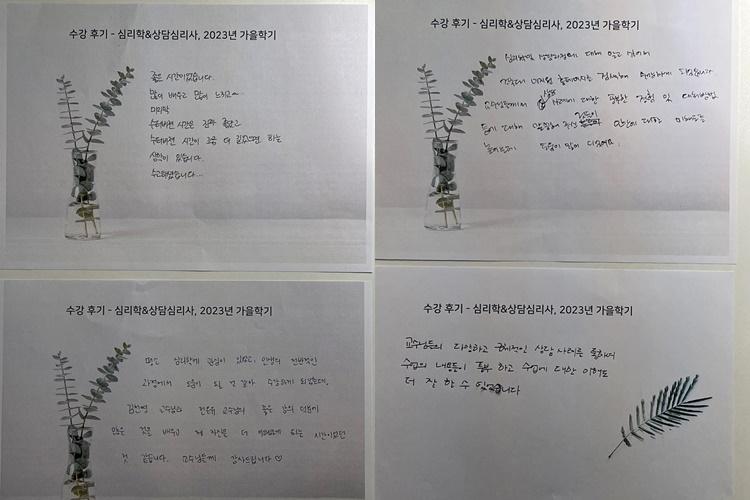 수강 후기 - 심리학&상담심리사, 2023년 가을학기
좋은 시간이었습니다.
많이 배우고 많이 느끼고~
마지막
수퍼비전 시간은 김짜 좋았고
수퍼비전 시간이 조금 더 길었으면 하는
생각이 있습니다.
수고하셨습니다...
수강 후기 - 심리학&상담심리사, 2023년 가을학기
심리학및 상담과정에 대해 알고 싶어서
되었습니다.
교수님들께서 상담 사례에 대한 풍부한 경험 및 대처방법
등에 대해 말씀해 주신 점들이 인간에 대한 이해도를
높이는데 도움이 많이 되었어요.
수강 후기 - 심리학&상담심리사, 2023년 가을학기
평소 심리학에 관심이 있었고, 인생의 전반적인
과정에서 도움이 될 것 같아 수강하게 되었는데,
교수님과 교수님의 좋은 강의 덕분에
많은 것을 배우고 제 자신을 더 이해하게 되는 시간이었던
것 같습니다. 교수님들께 감사드립니다 ♡
수강 후기 - 심리학&상담심리사, 2023년 가을학기
교수님들의 다양하고 구체적인 상담 사례를 통해서
수업의 내용들이 풍부 하고 수업에 대한 이해도
더 잘 할 수 있었습니다